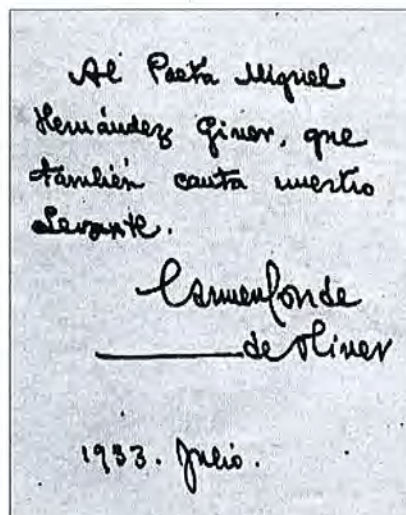 Al Poeta Miguel
Hernández Giner, que
también canta nuestro
Levante.
Carmen Conde
de Oliver
1933. Julio.